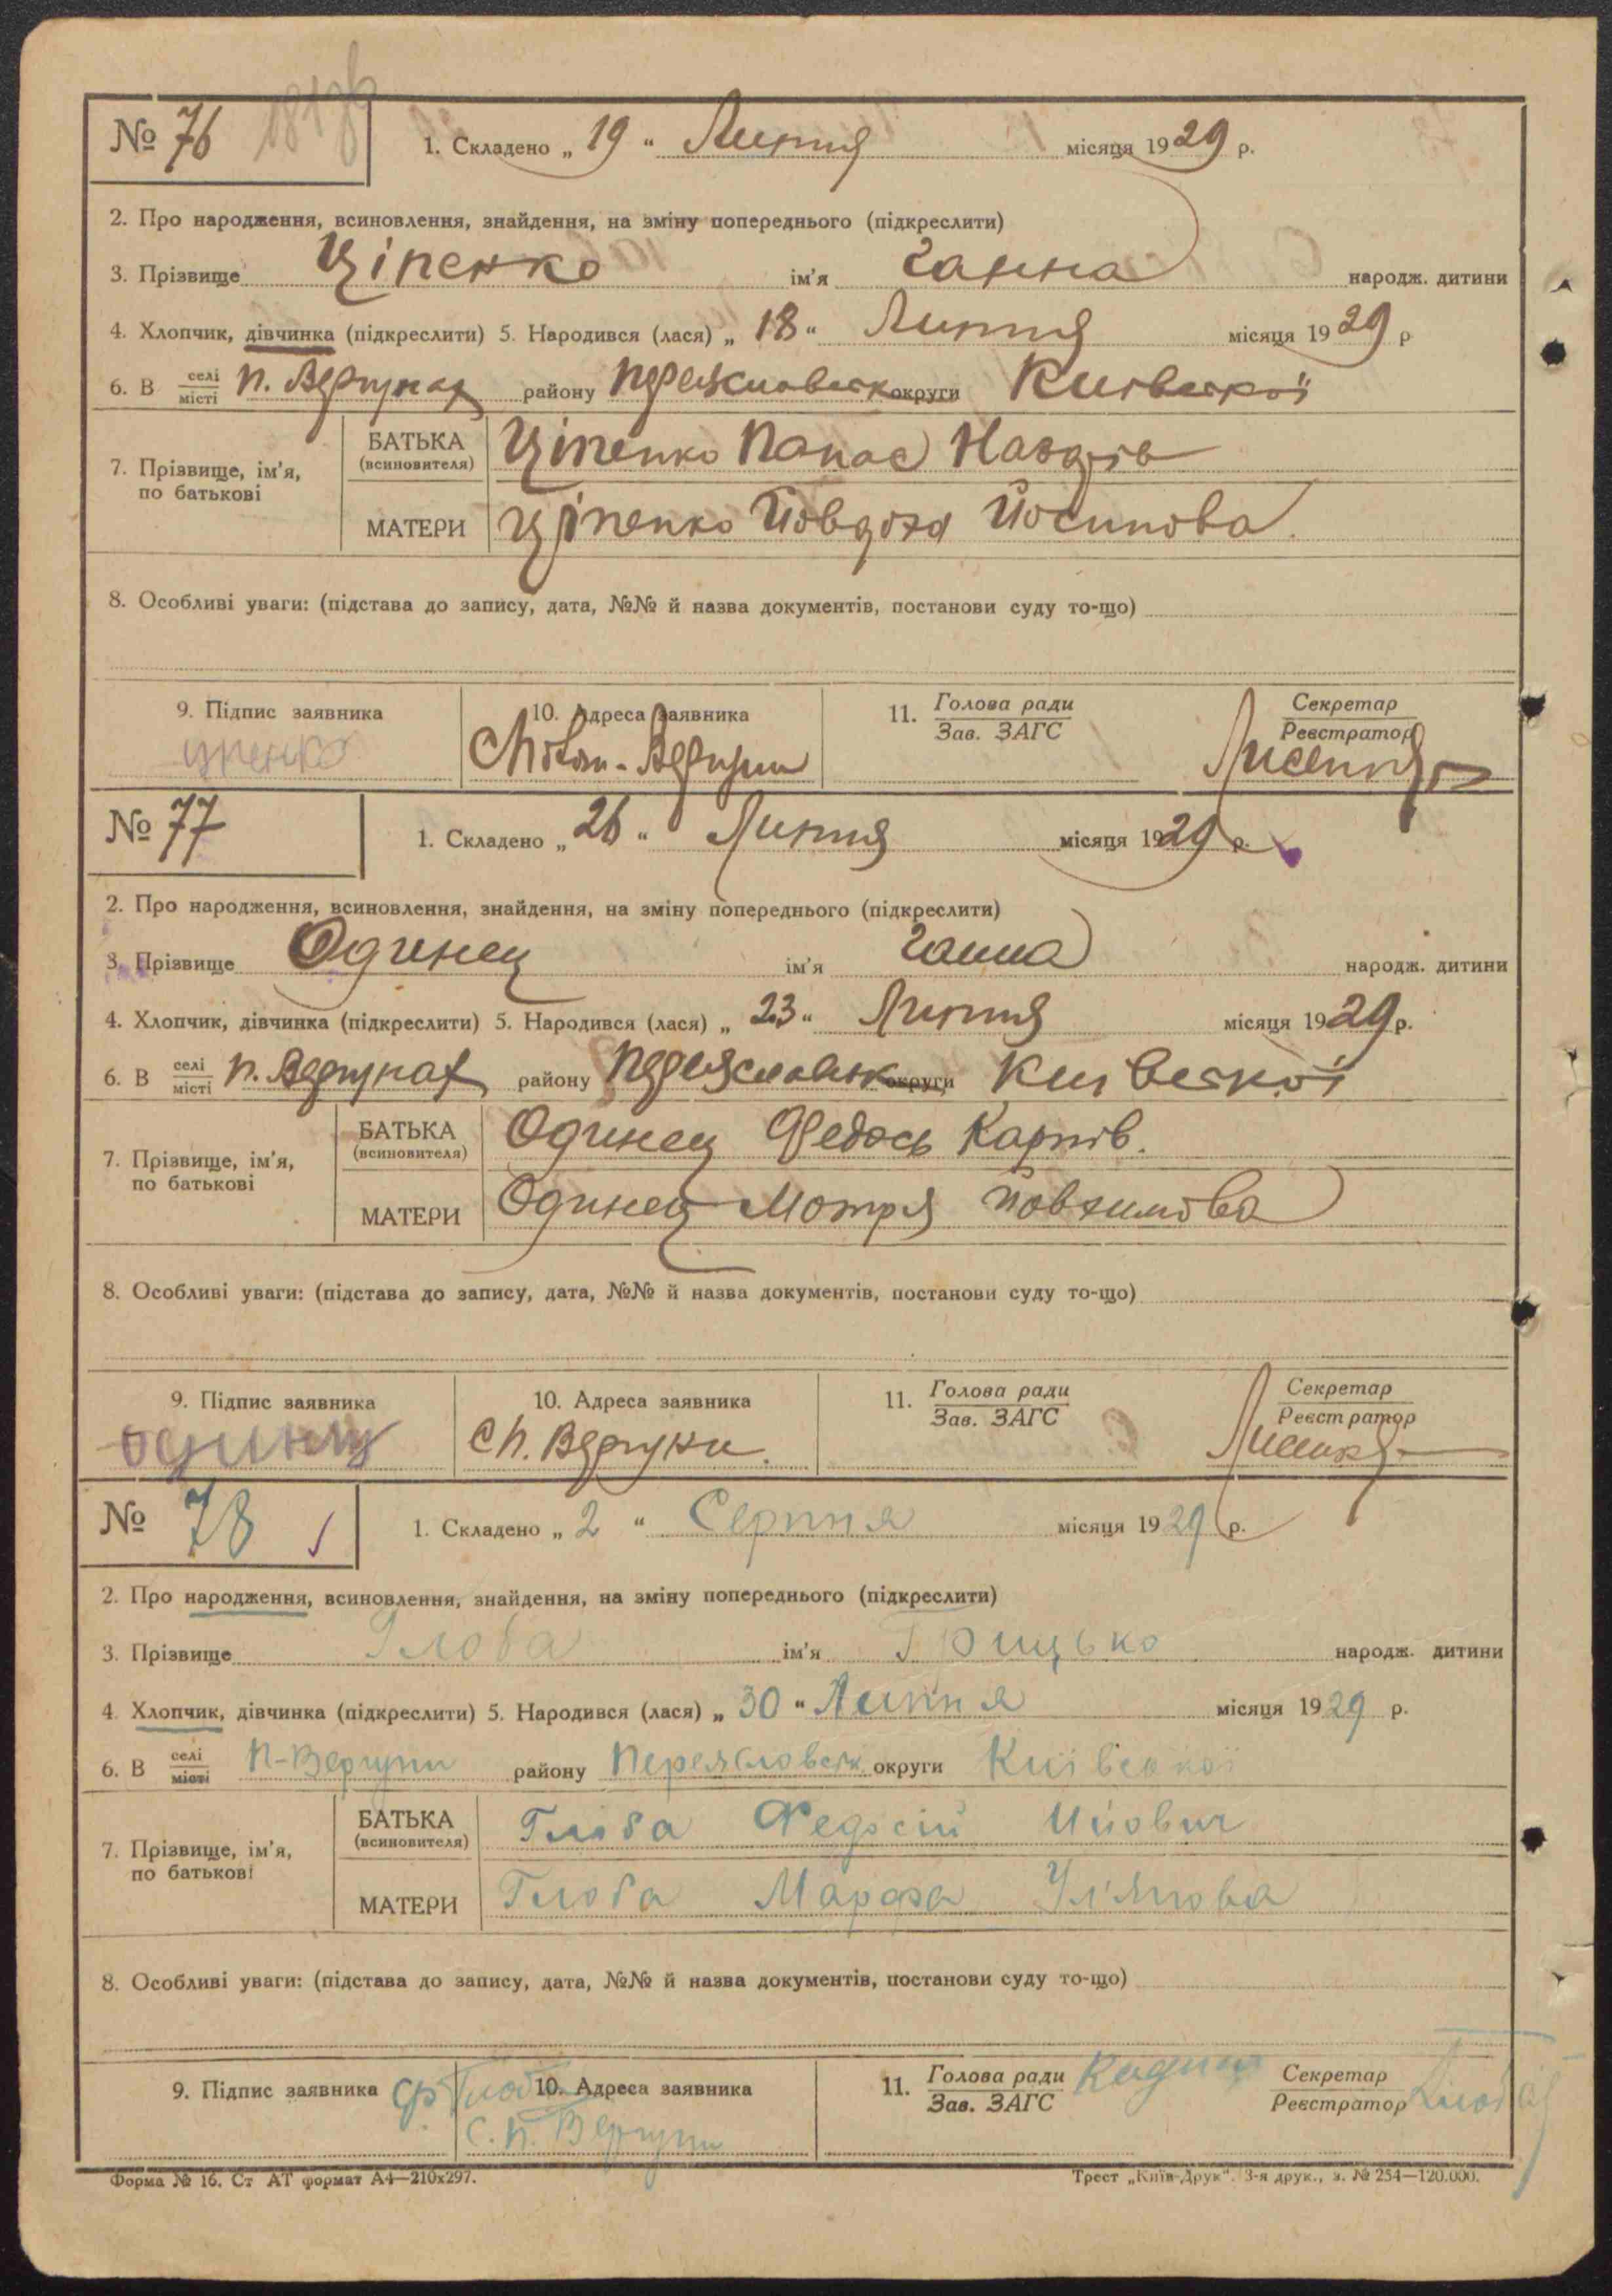 № 76
1. Складено „ 19 “ Липня місяця 1929 р.
2. Про народження, всиновлення, знайдення, на зміну попереднього (підкреслити)
3. Прізвище Ціпенко ім'я Ганна народж. дитини
4. Хлопчик, дівчинка (підкреслити) 5. Народився (лася) „ 18 “ Липня місяця 1929 р
6. В селі/місті п. Вергунах району Переяславськ округи Київської
7. Прізвище, ім'я, по батькові
БАТЬКА (всиновителя) Ціпенко Панас
МАТЕРИ Ціпенко Йовдоха Йосипова.
8. Особливі уваги: (підстава до запису, дата, №№ й назва документів, постанови суду то-що)
9. Підпис заявника 10. Адреса заявника 11. Голова ради/Зав. ЗАГС Секретар/Реєстратор
№ 77
1. Складено „ 26 “ Липня місяця 1929 р.
2. Про народження, всиновлення, знайдення, на зміну попереднього (підкреслити)
3. Прізвище Одинец ім'я Ганна народж. дитини
4. Хлопчик, дівчинка (підкреслити) 5. Народився (лася) „ 23 “ Липня місяця 1929 р.
6. В селі/місті п. Вергунах району Переяславськ округи Київської
7. Прізвище, ім'я, по батькові
БАТЬКА (всиновителя) Одинец Федось Карпів.
МАТЕРИ Одинец Мотря Йовхимова
8. Особливі уваги: (підстава до запису, дата, №№ й назва документів, постанови суду то-що)
9. Підпис заявника 10. Адреса заявника 11. Голова ради/Зав. ЗАГС Секретар/Реєстратор
одинец С П. Вергуни.
№ 78
1. Складено „ 2 “ Серпня місяця 1929 р.
2. Про народження, всиновлення, знайдення, на зміну попереднього (підкреслити)
3. Прізвище Глоба ім'я Грицько народж. дитини
4. Хлопчик, дівчинка (підкреслити) 5. Народився (лася) „ 30 “ Липня місяця 1929 р.
6. В селі/місті П-Вергуни району Переясловськ округи Київської
7. Прізвище, ім'я, по батькові
БАТЬКА (всиновителя) Глоба Федосій
МАТЕРИ Глоба Марфа Ул'янова
8. Особливі уваги: (підстава до запису, дата, №№ й назва документів, постанови суду то-що)
9. Підпис заявника 10. Адреса заявника 11. Голова ради/Зав. ЗАГС Секретар/Реєстратор
С. П. Вергуни
Форма № 16. Ст АТ формат А4—210х297. Трест „Київ-Друк“. 3-я друк., з. № 254—120.000.